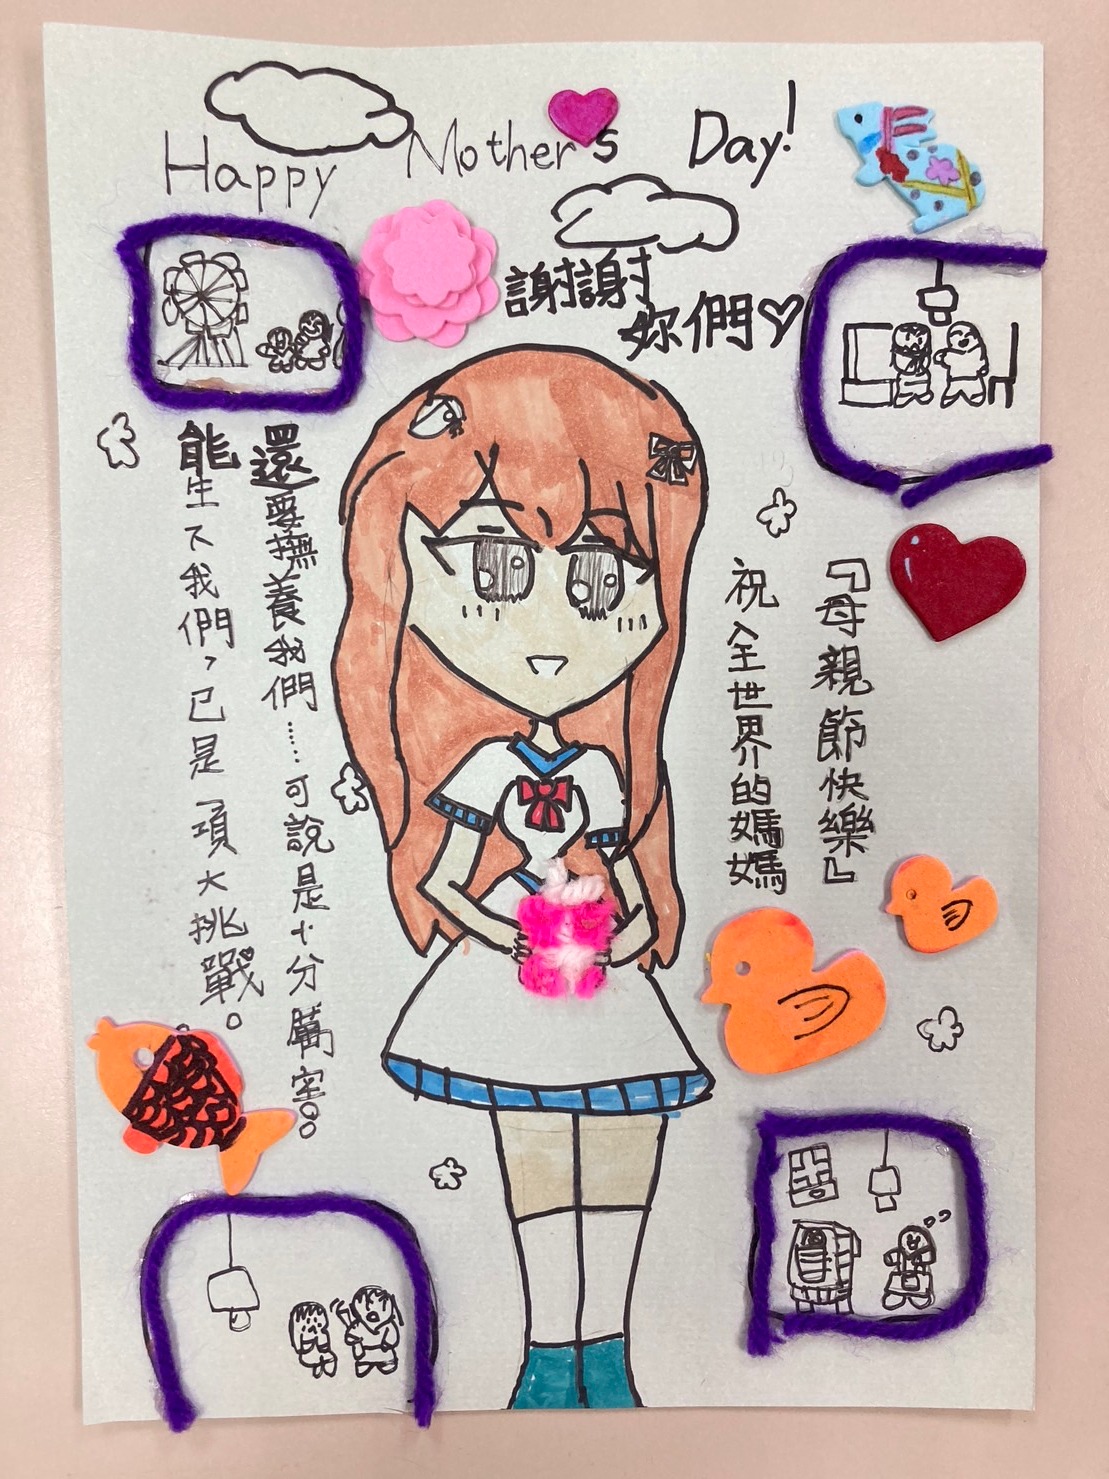 Happy Mother's Day!
謝謝
妳們♡
能生下我們，已是一項大挑戰。
還要撫養我們……可說是十分厲害。
祝全世界的媽媽
『母親節快樂』